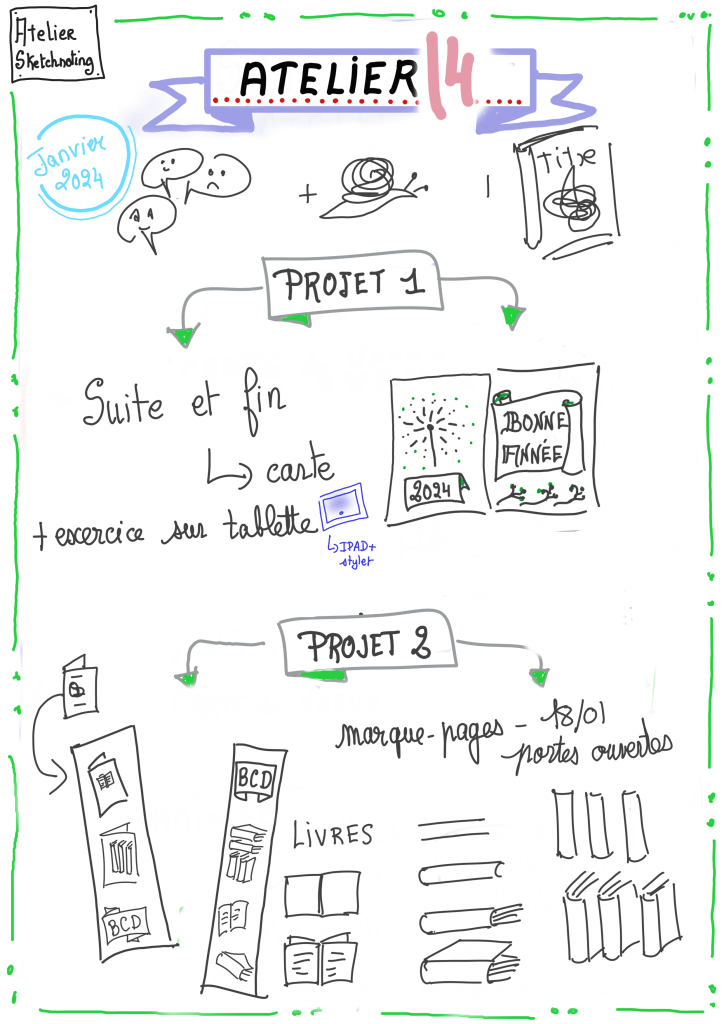 Atelier
Sketchnoting
ATELIER 14
Janvier
2024
titre
PROJET 1
Suite et fin
carte
+ excercice sur tablette
IPAD +
stylet
2024
BONNE
ANNÉE
PROJET 2
marque-pages - 18/01
portes ouvertes
BCD
BCD
LIVRES